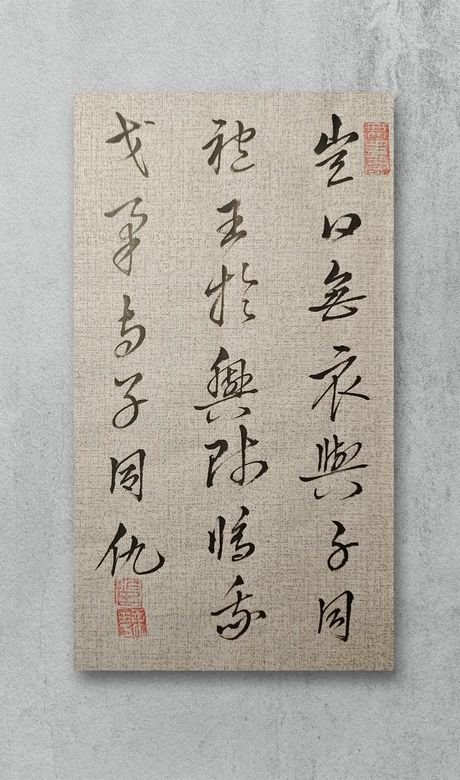 豈曰無衣與子同
袍王於興師修我
戈矛与子同仇